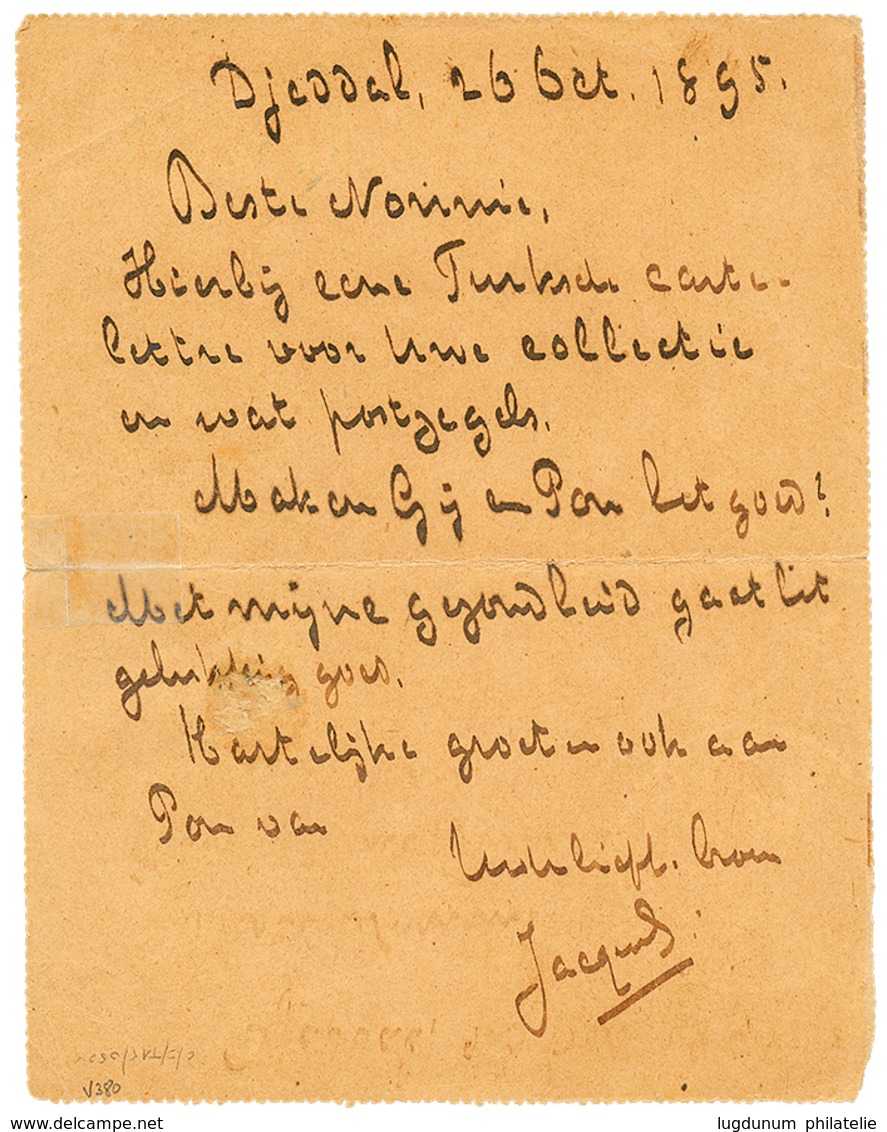 Djeddah, 26 Oct. 1895.
Beste Nonnie,
Hierbij eene Turksche carte-
lettre voor Uwe collectie
en wat postzegels.
Maken Gij en Pon het goed?
Met mijne gezondheid gaat het
gelukkig goed.
Hartelijke groeten ook aan
Pon van
Uw liefh. broer
Jacques.
V380
delcampe.net
lugdunum philatelie